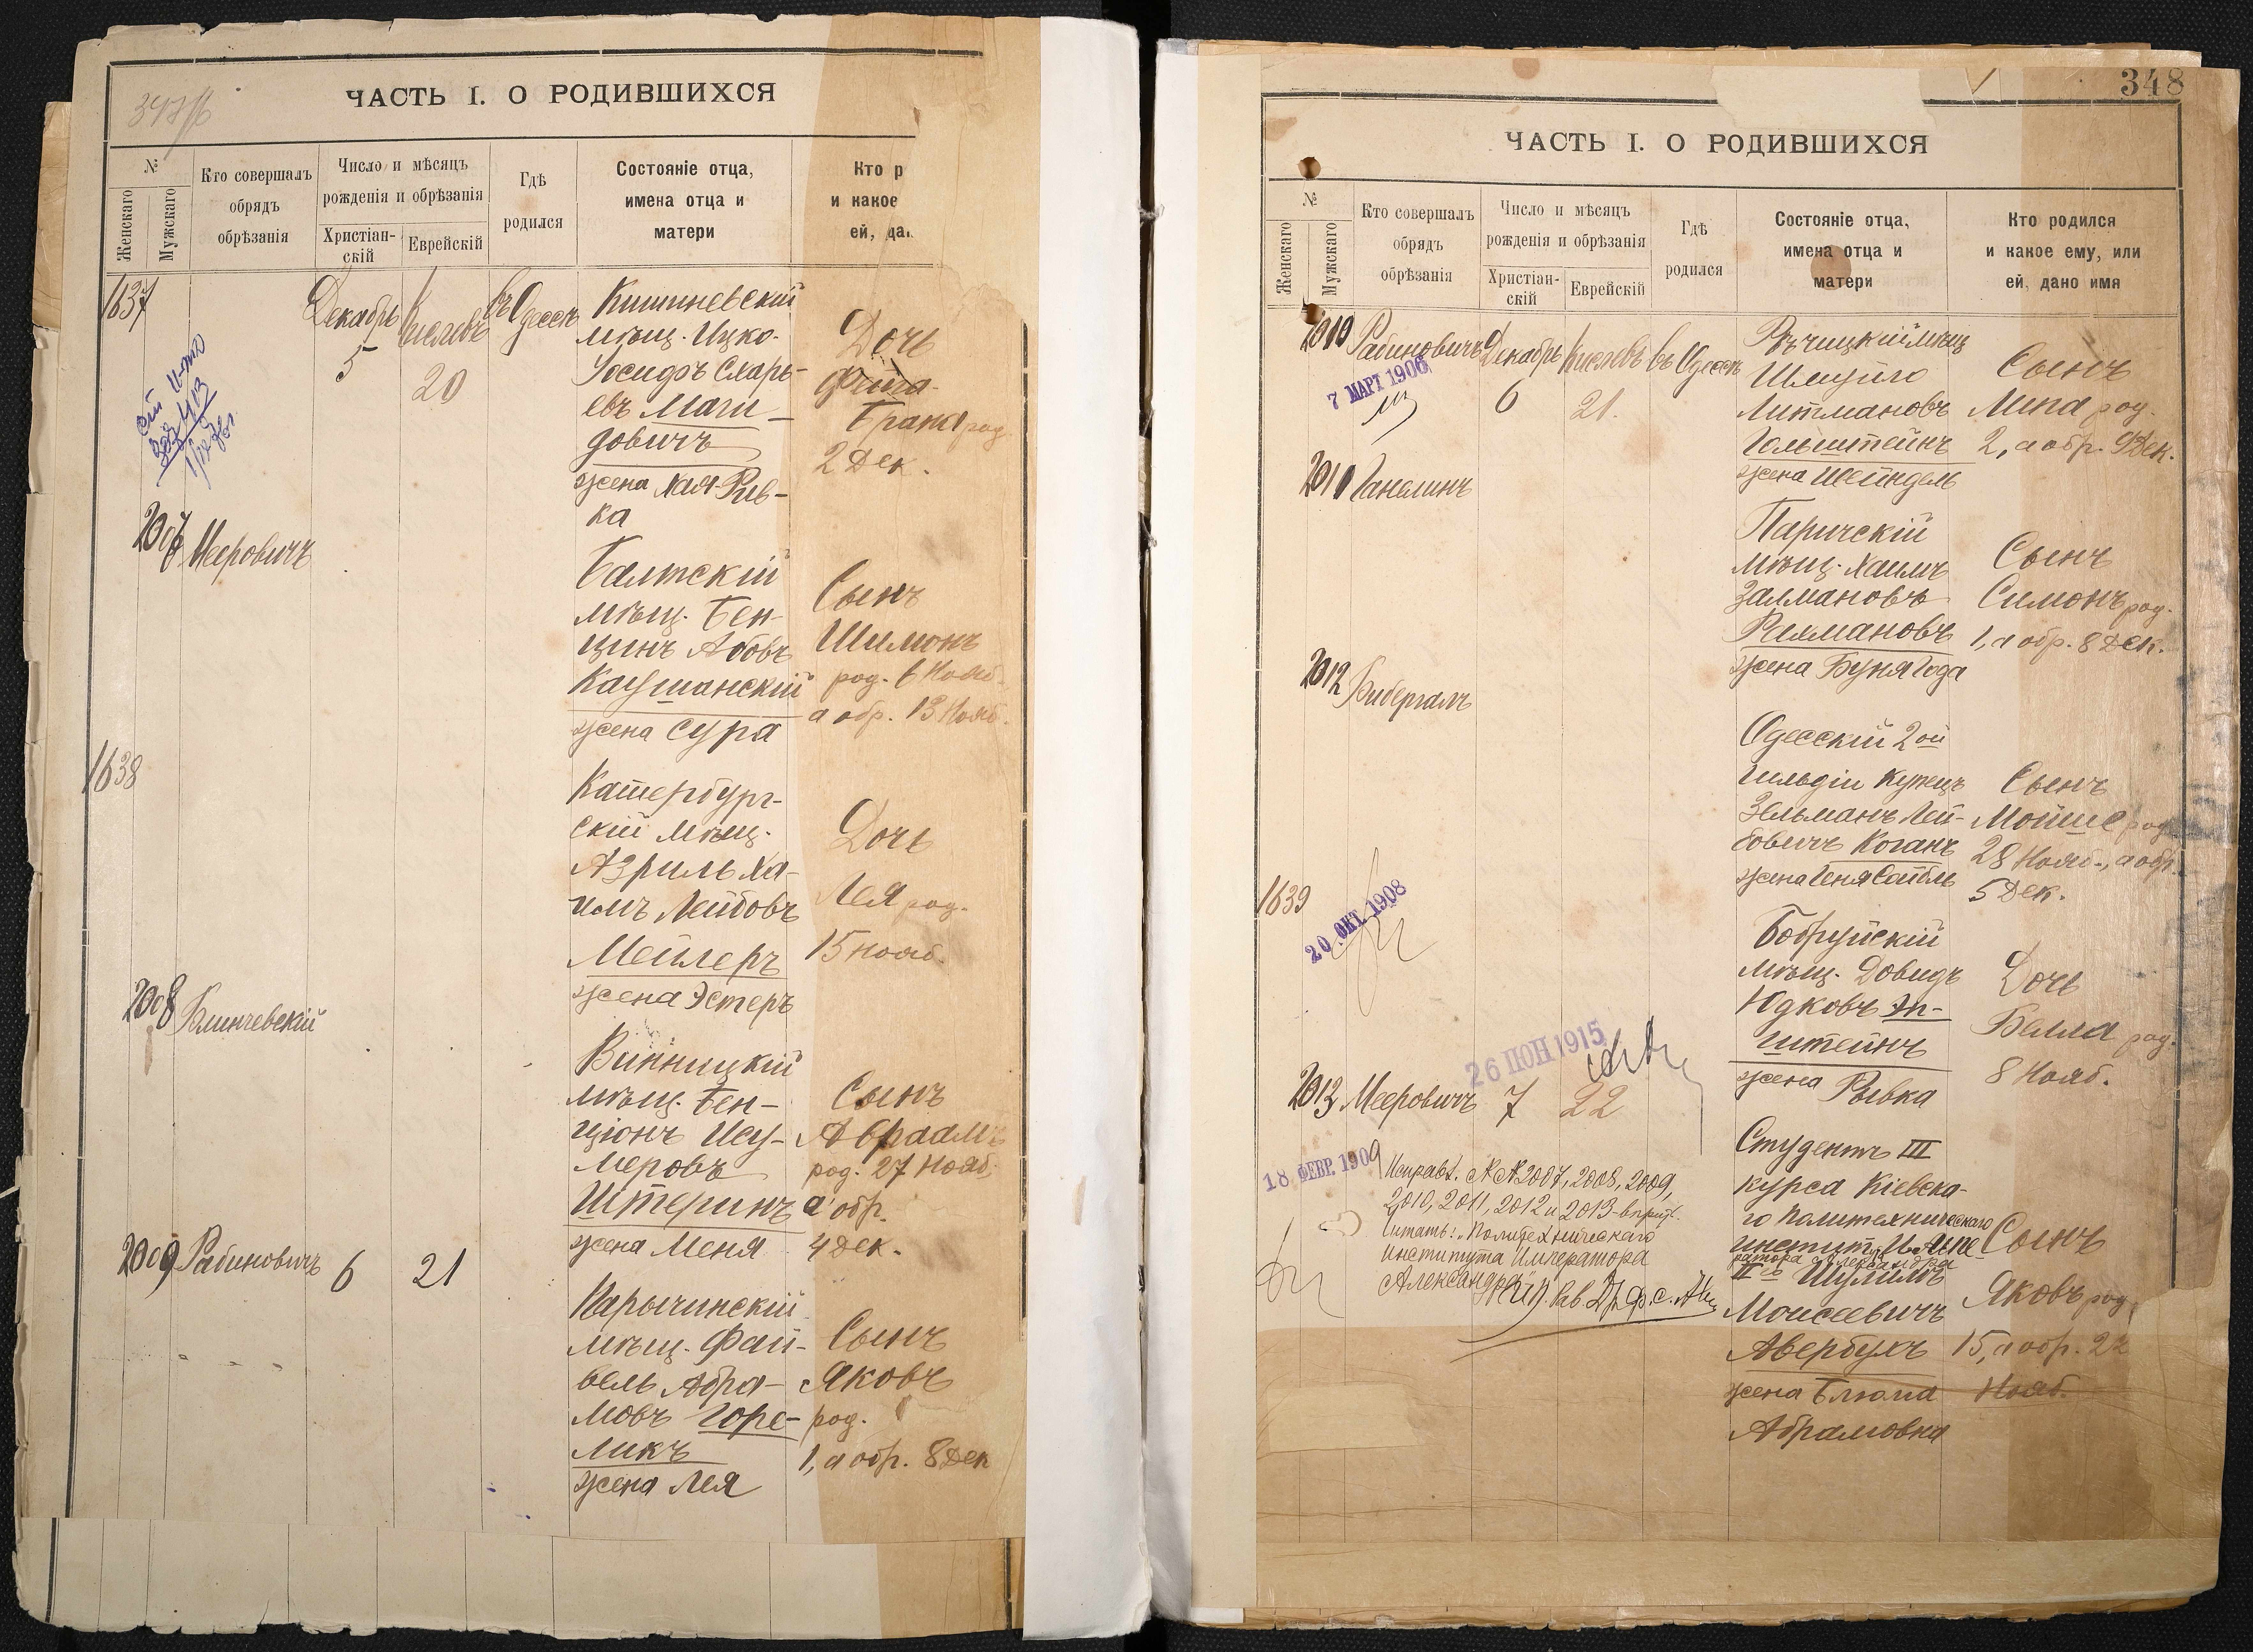 347об
ЧАСТЬ I. О РОДИВШИХСЯ
№
Женскаго
Мужскаго
Кто совершалъ
обрядъ
обрѣзанія
Число и мѣсяцъ
рожденія и обрѣзанія
Христіан-
скій
Еврейскій
Гдѣ
родился
Состояніе отца,
имена отца и
матери
Кто р
и какое
ей, дан
1637
Декабрь
5
Кислевъ
20
въ Одессѣ
Кишиневскій
мѣщ. Ицко-
Іосифъ Сларь-
евъ Маги-
довичъ
жена Хая-Рив-
ка
Дочь
Фейга-
Брана род.
2 Дек.
2007
Мееровичъ
Балтскій
мѣщ. Бен-
ціинъ Абовъ
Каушанскій
жена Сура
Сынъ
Шимонъ
род. 6 Нояб.
а обр. 13 Нояб.
1638
Катербург-
скій мѣщ.
Азриль Ха-
имъ Лейбовъ
Мейлеръ
жена Эстеръ
Дочь
Лея род.
15 Нояб.
2008
Клинчевскій
Винницкій
мѣщ. Бен-
ціонъ Ису-
меровъ
Штеринъ
жена Меня
Сынъ
Авраамъ
род. 27 Нояб.
а обр.
4 Дек.
2009
Рабиновичъ
6
21
Карычинскій
мѣщ. Фай-
вель Абра-
мовъ Горе-
ликъ
жена Лея
Сынъ
Яковъ
род.
1, а обр. 8 Дек
348
ЧАСТЬ I. О РОДИВШИХСЯ
№
Женскаго
Мужскаго
Кто совершалъ
обрядъ
обрѣзанія
Число и мѣсяцъ
рожденія и обрѣзанія
Христіан-
скій
Еврейскій
Гдѣ
родился
Состояніе отца,
имена отца и
матери
Кто родился
и какое ему, или
ей, дано имя
2010
Рабиновичъ
7 МАРТ 1906
Декабрь
6
Кислевъ
21.
въ Одессѣ
Рѣчицкій мѣщ
Шмуйло
Литмановъ
Гольштейнъ
жена Шейндель
Сынъ
Липа род.
2, а обр. 9 Дек.
2011
Ганелинъ
Паричскій
мѣщ. Хаимъ
Залмановъ
Рахмановъ
жена Буня Года
Сынъ
Симонъ род.
1, а обр. 8 Дек.
2012
Бибергалъ
Одесскій 2ой
гильдіи купецъ
Зельманъ Лей-
бовичъ Коганъ
жена Геня Сойбль
Сынъ
Мойше род.
28 Нояб., а обр.
5 Дек.
1639
20 ОКТ. 1908
Бобруйскій
мѣщ. Довидъ
Юдковъ Эп-
штейнъ
жена Рывка
Дочь
Белла род.
8 Нояб.
26 ІЮН 1915
2013
Мееровичъ
7
22
18 ФЕВР. 1909
Студентъ III
курса Кіевска-
го Политехническаго
институт. Импе-
ратора Александра
II го Шулимъ
Моисеевичъ
Авербухъ
жена Блюма
Абрамовна
Сынъ
Яковъ род.
15, а обр. 22
Нояб.
Исправл. №№ 2007, 2008, 2009,
2010, 2011, 2012 и 2013
Читать: „Политехническаго
института Императора
Александра II".